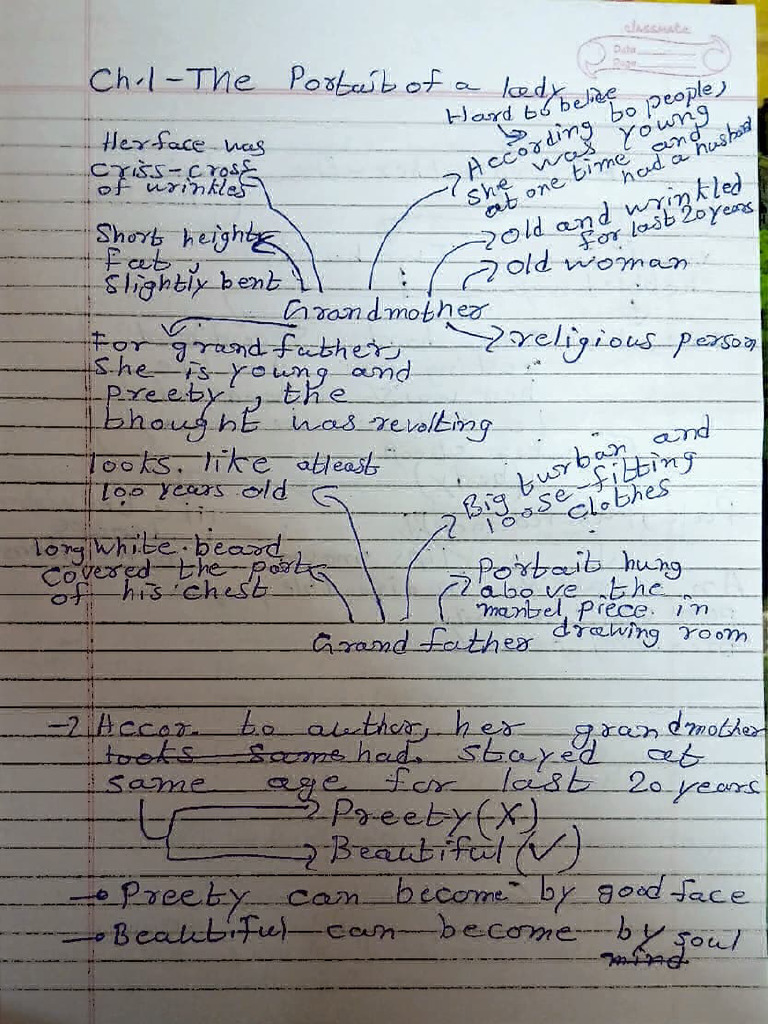 classmate
Date
Page
Ch.1 - The Portait of a lady
Hard to beliee
According to people,
she was young
at one time and
had a husband
Her face was
criss-cross
of wrinkles
Old and wrinkled
for last 20 years
Short height,
fat,
Slightly bent
old woman
Grandmother
religious person
For grandfather,
she is young and
Preety, the
thought was revolting
looks. like atleast
100 years old
Big turban and
loose-fitting
clothes
long white beard
covered the part
of his chest
Portait hung
above the
mantel piece. in
drawing room
Grand father
→ Accor. to author, her grandmother
looks same had. stayed at
same age for last 20 years
Preety (X)
Beautiful (✓)
→ Preety can become by good face
→ Beautiful can become by soul
mind